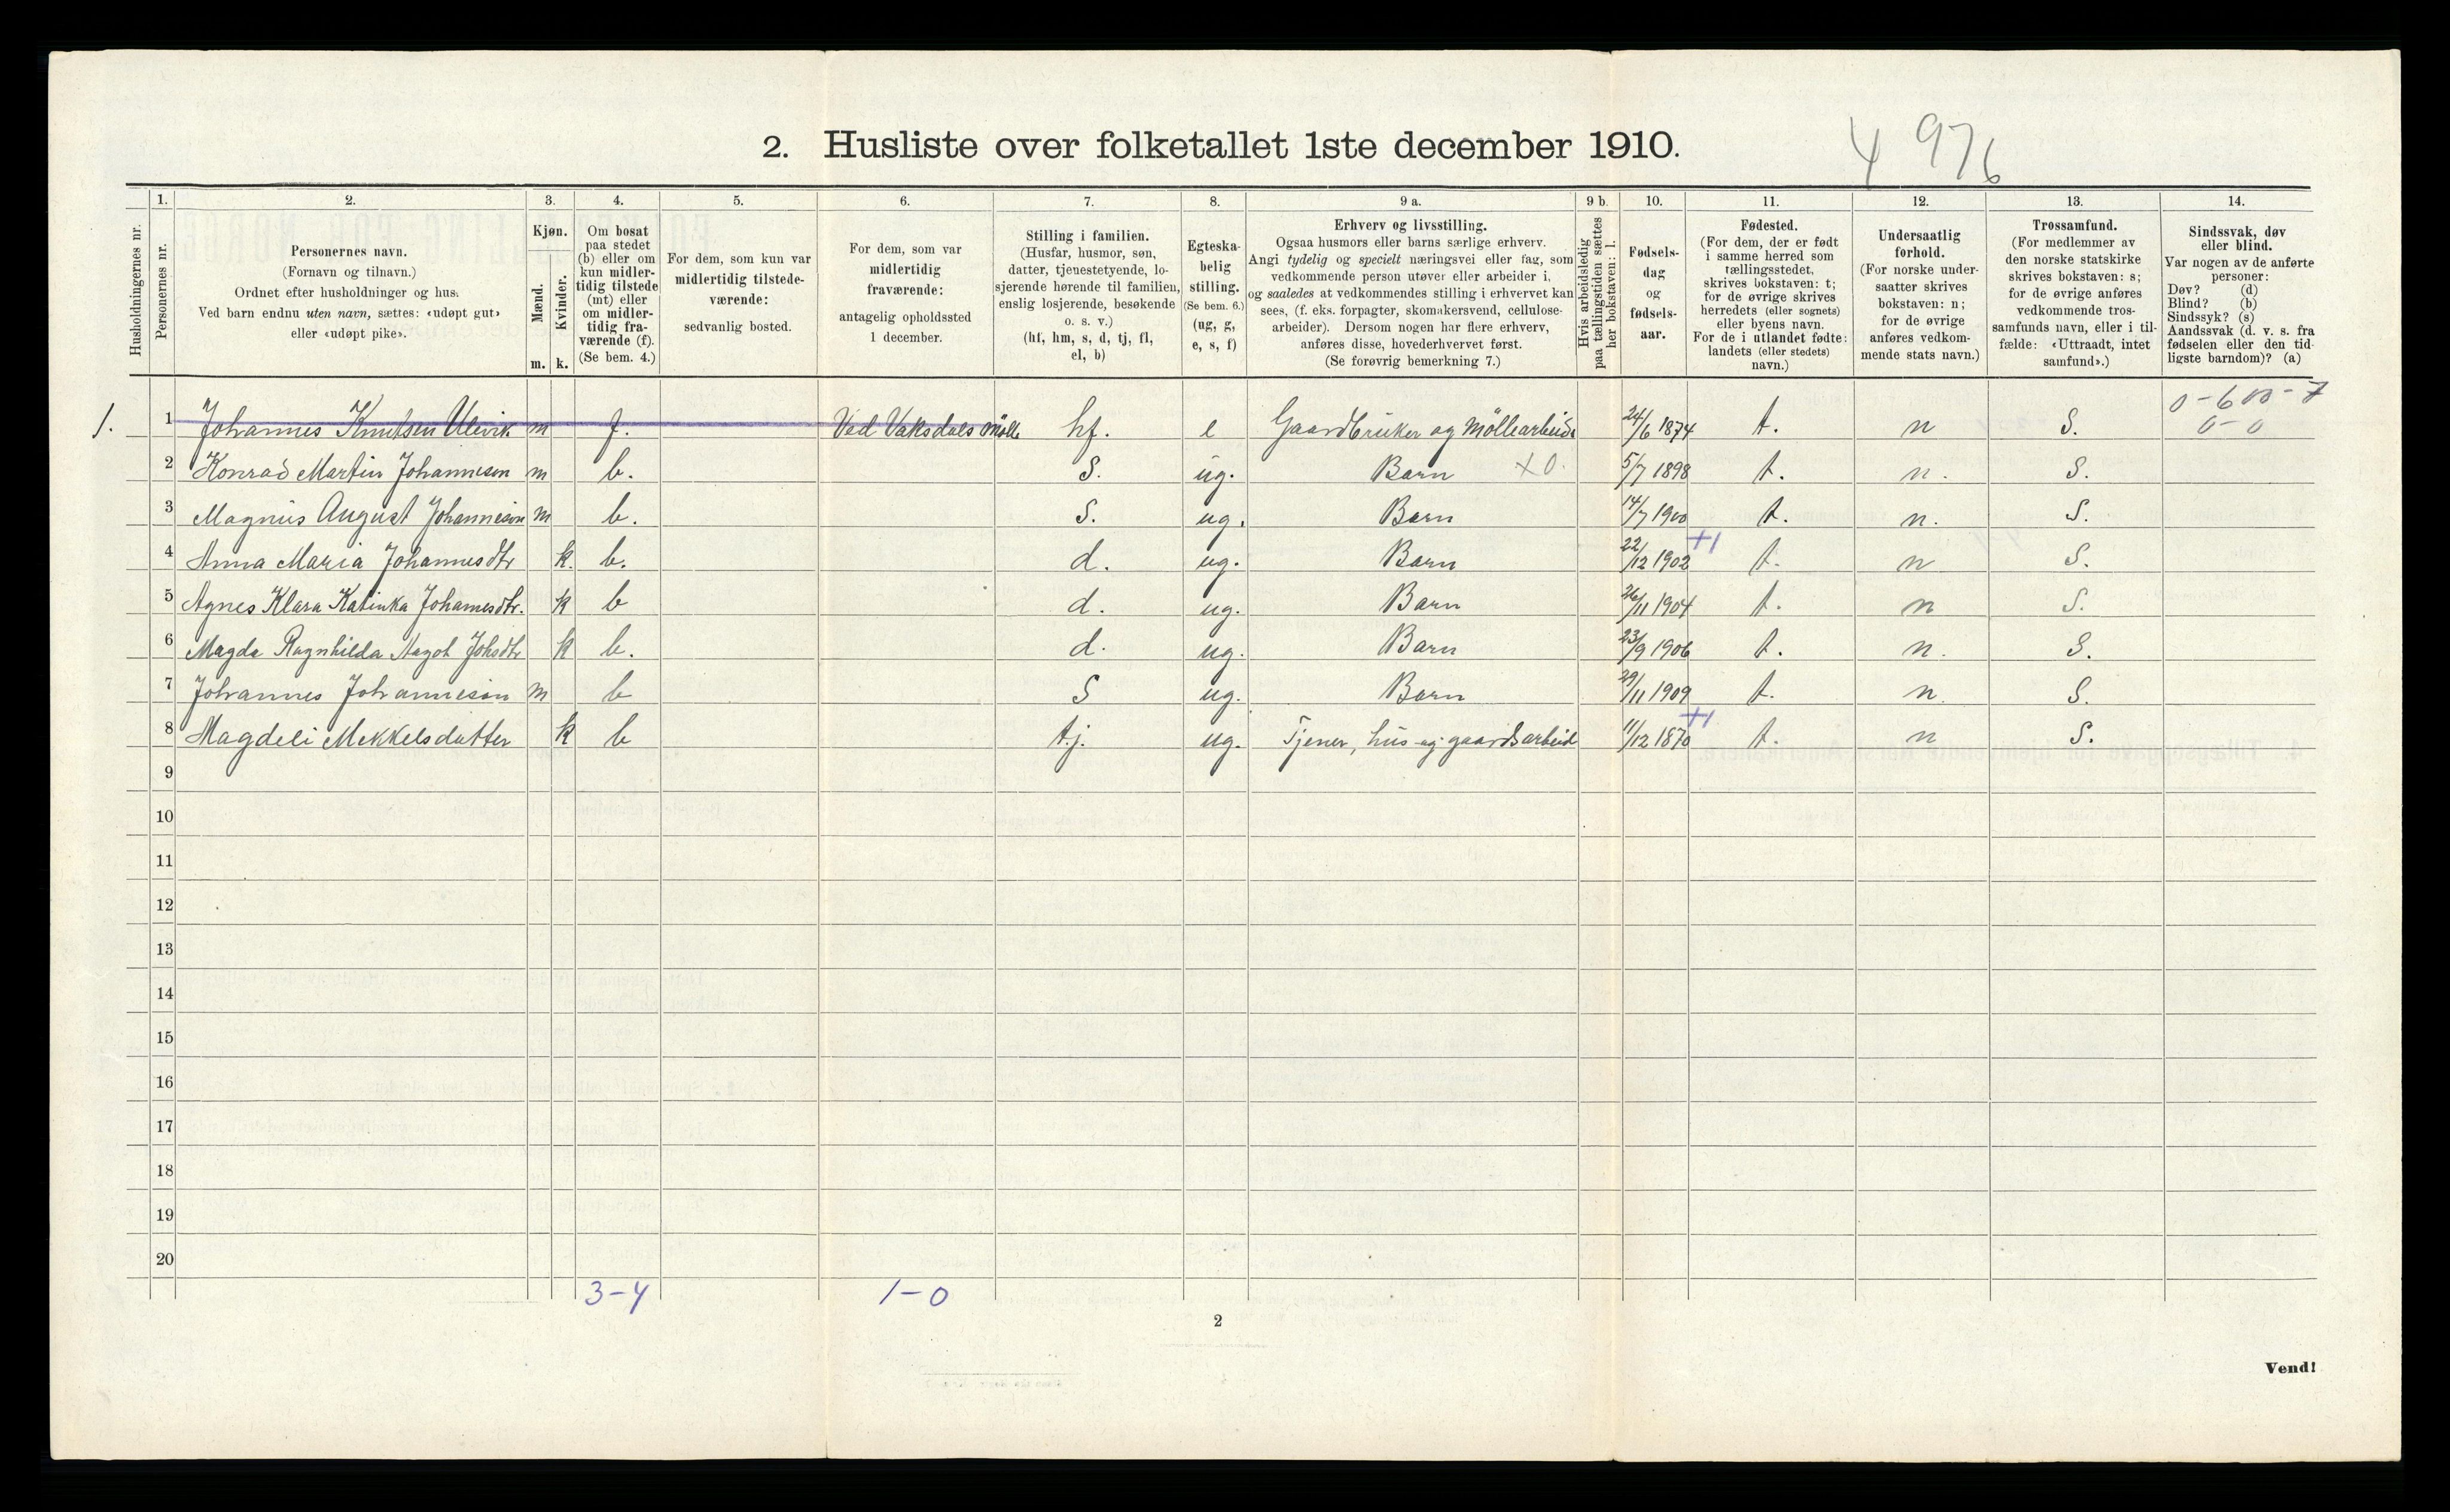 4 976
2. Husliste over folketallet 1ste december 1910.
Husholdningernes nr.
1.
Personernes nr.
2.
Personernes navn.
(Fornavn og tilnavn.)
Ordnet efter husholdninger og hus.
Ved barn endnu uten navn, sættes: «udøpt gut»
eller «udøpt pike».
3.
Kjøn.
Mænd.
Kvinder.
m. k.
4.
Om bosat
paa stedet
(b) eller om
kun midler-
tidig tilstede
(mt) eller
om midler-
tidig fra-
værende (f).
(Se bem. 4.)
5.
For dem, som kun var
midlertidig tilstede-
værende:
sedvanlig bosted.
6.
For dem, som var
midlertidig
fraværende:
antagelig opholdssted
1 december.
7.
Stilling i familien.
(Husfar, husmor, søn,
datter, tjenestetyende, lo-
sjerende hørende til familien,
enslig losjerende, besøkende
o. s. v.)
(hf, hm, s, d, tj, fl,
el, b)
8.
Egteska-
belig
stilling.
(Se bem. 6.)
(ug, g,
e, s, f)
9 a.
Erhverv og livsstilling.
Ogsaa husmors eller barns særlige erhverv.
Angi tydelig og specielt næringsvei eller fag, som
vedkommende person utøver eller arbeider i,
og saaledes at vedkommendes stilling i erhvervet kan
sees, (f. eks. forpagter, skomakersvend, cellulose-
arbeider). Dersom nogen har flere erhverv,
anføres disse, hovederhvervet først.
(Se forøvrig bemerkning 7.)
9 b.
Hvis arbeidsledig
paa tællingstiden sættes
her bokstaven: l.
10.
Fødsels-
dag
og
fødsels-
aar.
11.
Fødested.
(For dem, der er født
i samme herred som
tællingsstedet,
skrives bokstaven: t;
for de øvrige skrives
herredets (eller sognets)
eller byens navn.
For de i utlandet fødte:
landets (eller stedets)
navn.)
12.
Undersaatlig
forhold.
(For norske under-
saatter skrives
bokstaven: n;
for de øvrige
anføres vedkom-
mende stats navn.)
13.
Trossamfund.
(For medlemmer av
den norske statskirke
skrives bokstaven: s;
for de øvrige anføres
vedkommende tros-
samfunds navn, eller i til-
fælde: «Uttraadt, intet
samfund».)
14.
Sindssvak, døv
eller blind.
Var nogen av de anførte
personer:
Døv? (d)
Blind? (b)
Sindssyk? (s)
Aandssvak (d. v. s. fra
fødselen eller den tid-
ligste barndom)? (a)
1. 1 Johannes Knutsen Ulevik m f. Ved Vaksdals mölle hf. e Gaardbruker og Möllearbeide 24/6 1874 t. n S. 0-0
2 Konrad Martin Johannesen m b. S. ug. Barn +0. 5/7 1898 t. n. S.
3 Magnus August Johannesen m b. S. ug. Barn 14/7 1900 t. n. S.
4 Anna Maria Johannesdtr k. b. d. ug. Barn 22/12 1902 +1 t. n S.
5 Agnes Klara Katinka Johannesdtr. k b d. ug. Barn 26/11 1904 t. n S.
6 Magda Ragnhilda Aagot Johsdtr k b. d. ug. Barn 23/9 1906 t. n. S.
7 Johannes Johannesen m b S ug. Barn 29/11 1909 t. n. S.
8 Magdeli Mekkelsdatter k b t.j. ug. Tjener, hus og gaardsarbeid 11/12 1870 +1 t. n S.
9
10
11
12
13
14
15
16
17
18
19
20
3-4 1-0
2
Vend!